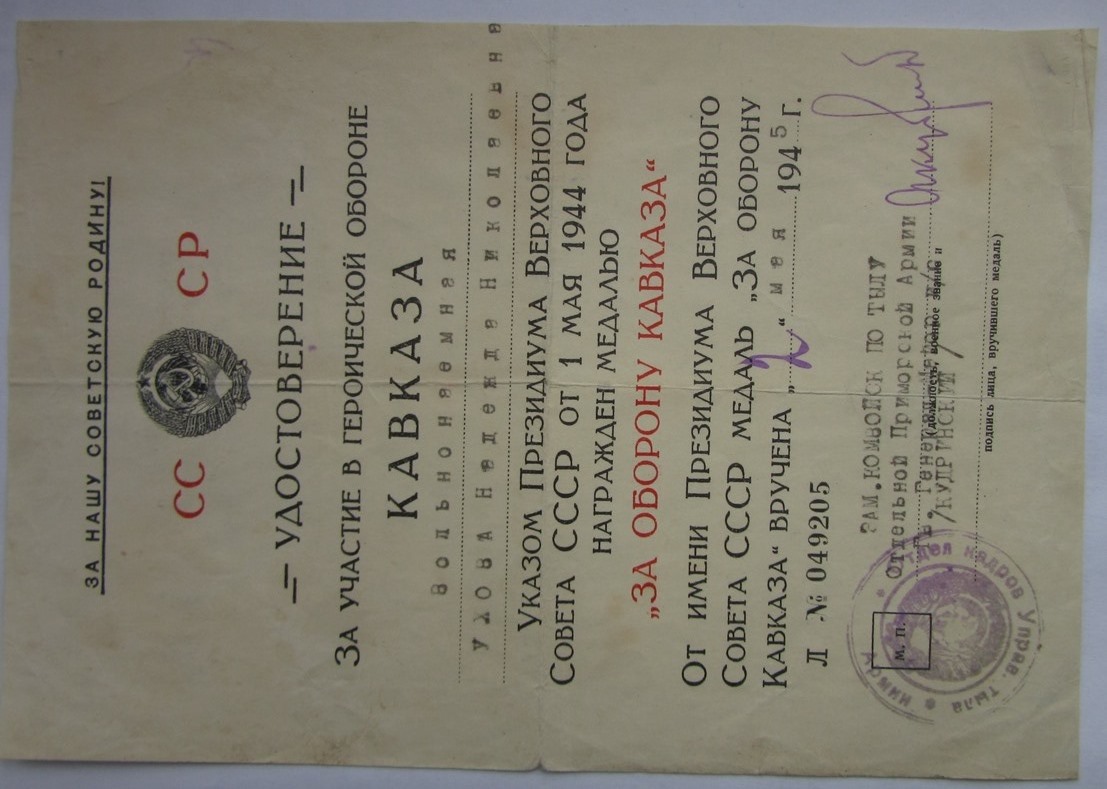 ЗА НАШУ СОВЕТСКУЮ РОДИНУ!
СС СР
УДОСТОВЕРЕНИЕ
ЗА УЧАСТИЕ В ГЕРОИЧЕСКОЙ ОБОРОНЕ
КАВКАЗА
вольнонаемная
УДОВА Надежда Николаевна
УКАЗОМ ПРЕЗИДИУМА ВЕРХОВНОГО
СОВЕТА СССР ОТ 1 МАЯ 1944 ГОДА
НАГРАЖДЕН МЕДАЛЬЮ
„ЗА ОБОРОНУ КАВКАЗА“
ОТ ИМЕНИ ПРЕЗИДИУМА ВЕРХОВНОГО
СОВЕТА СССР МЕДАЛЬ „ЗА ОБОРОНУ
КАВКАЗА“ ВРУЧЕНА „2“ мая 1945 г.
Л № 049205
ЗАМ.КОМВОЙСК ПО ТЫЛУ
Отдельной Приморской Армии
(должность, военное звание и
/КУДРИНСКИЙ/
подпись лица, вручившего медаль)
М. П.
Отдел кадров Управ. тыла